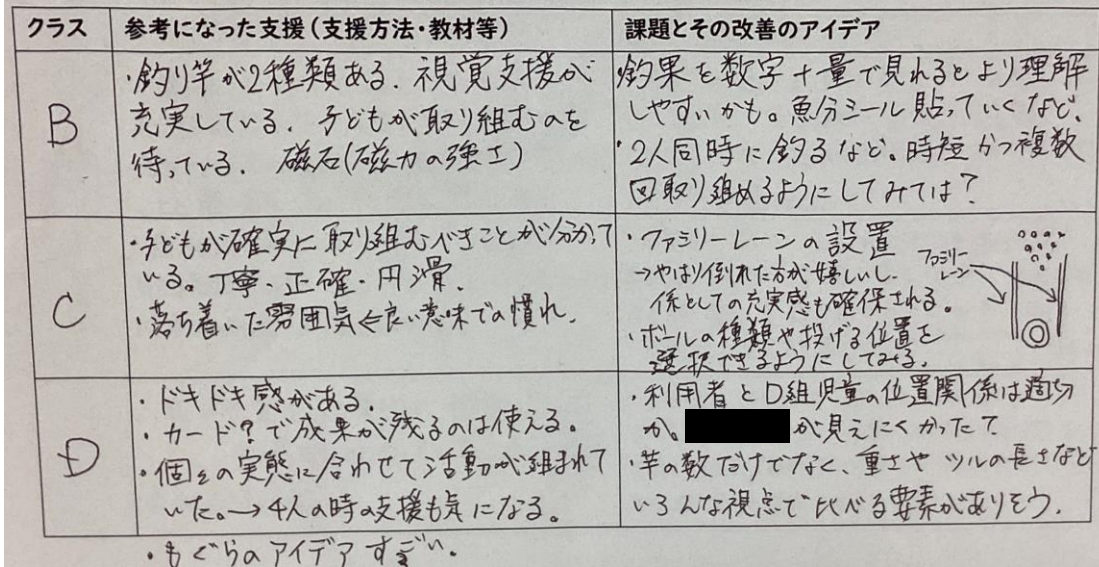 クラス
参考になった支援(支援方法・教材等)
課題とその改善のアイデア
B
・釣り竿が2種類ある. 視覚支援が
充実している. 子どもが取り組むのを
待っている. 磁石(磁力の強さ)
・釣果を数字+量で見れるとより理解
しやすいかも。魚分シール貼っていくなど.
・2人同時に釣るなど。時短かつ複数
回取り組めるようにしてみては?
C
・子どもが確実に取り組むべきことが分かって
いる。丁寧・正確・円滑.
・落ち着いた雰囲気⇐良い意味での慣れ.
・ファミリーレーンの設置
→やはり倒れた方が嬉しいし.
係としての充実感も確保される。
・ボールの種類や投げる位置を
選択できるようにしてみる.
ファミリー
レーン
D
・ドキドキ感がある.
・カード?で成果が残るのは使える。
・個々の実態に合わせて活動が組まれて
いた。→4人の時の支援も気になる。
・もぐらのアイデアすごい.
・利用者とD組児童の位置関係は適切
か。が見えにくかった?
・竿の数だけでなく、重さやツルの長さなど
いろんな視点で比べる要素がありそう.